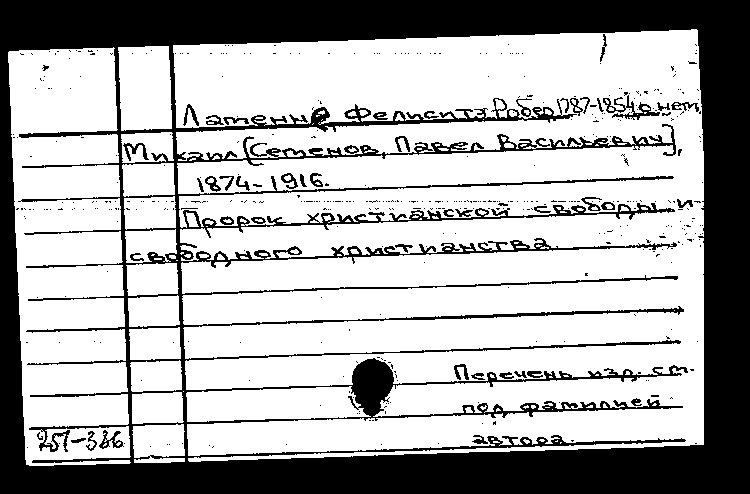 Ламенне, Фелиситэ Робер 1787-1854 о нем
Михаил [Семенов, Павел Васильевич],
1874-1916.
Пророк христианской свободы и
свободного христианства.
Перечень изд. см.
под фамилией
автора.
251-386